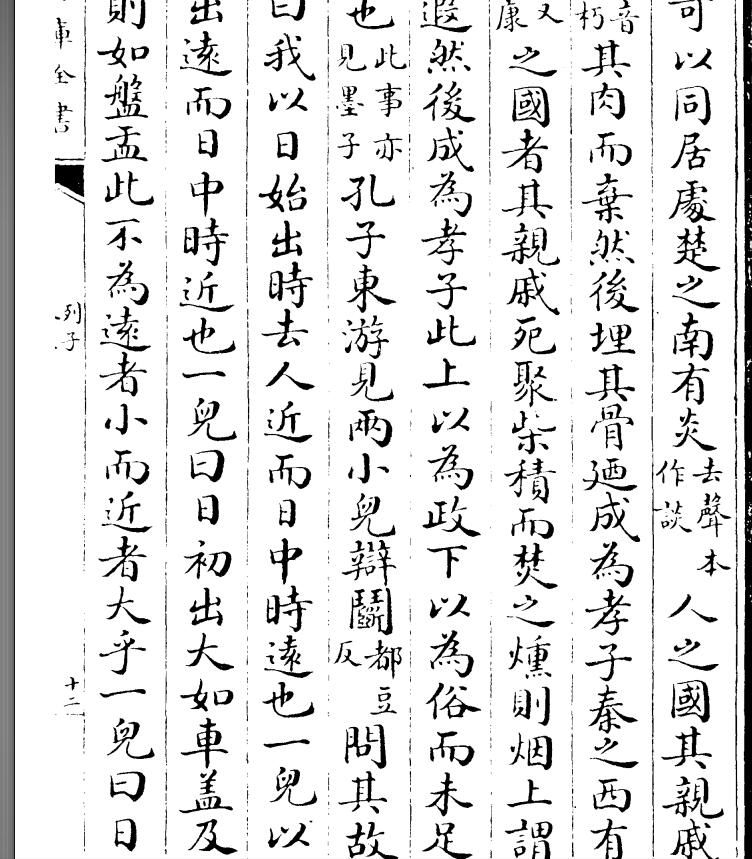 可以同居處楚之南有炎去聲本作談人之國其親戚
音朽其肉而棄然後埋其骨廼成為孝子秦之西有
又康之國者其親戚死聚柴積而焚之燻則烟上謂
遐然後成為孝子此上以為政下以為俗而未足
也此事亦見墨子孔子東游見兩小兒辯鬭都豆反問其故
曰我以日始出時去人近而日中時遠也一兒以
出遠而日中時近也一兒曰日初出大如車盖及
則如盤盂此不為遠者小而近者大乎一兒曰日
庫全書
列子
十二